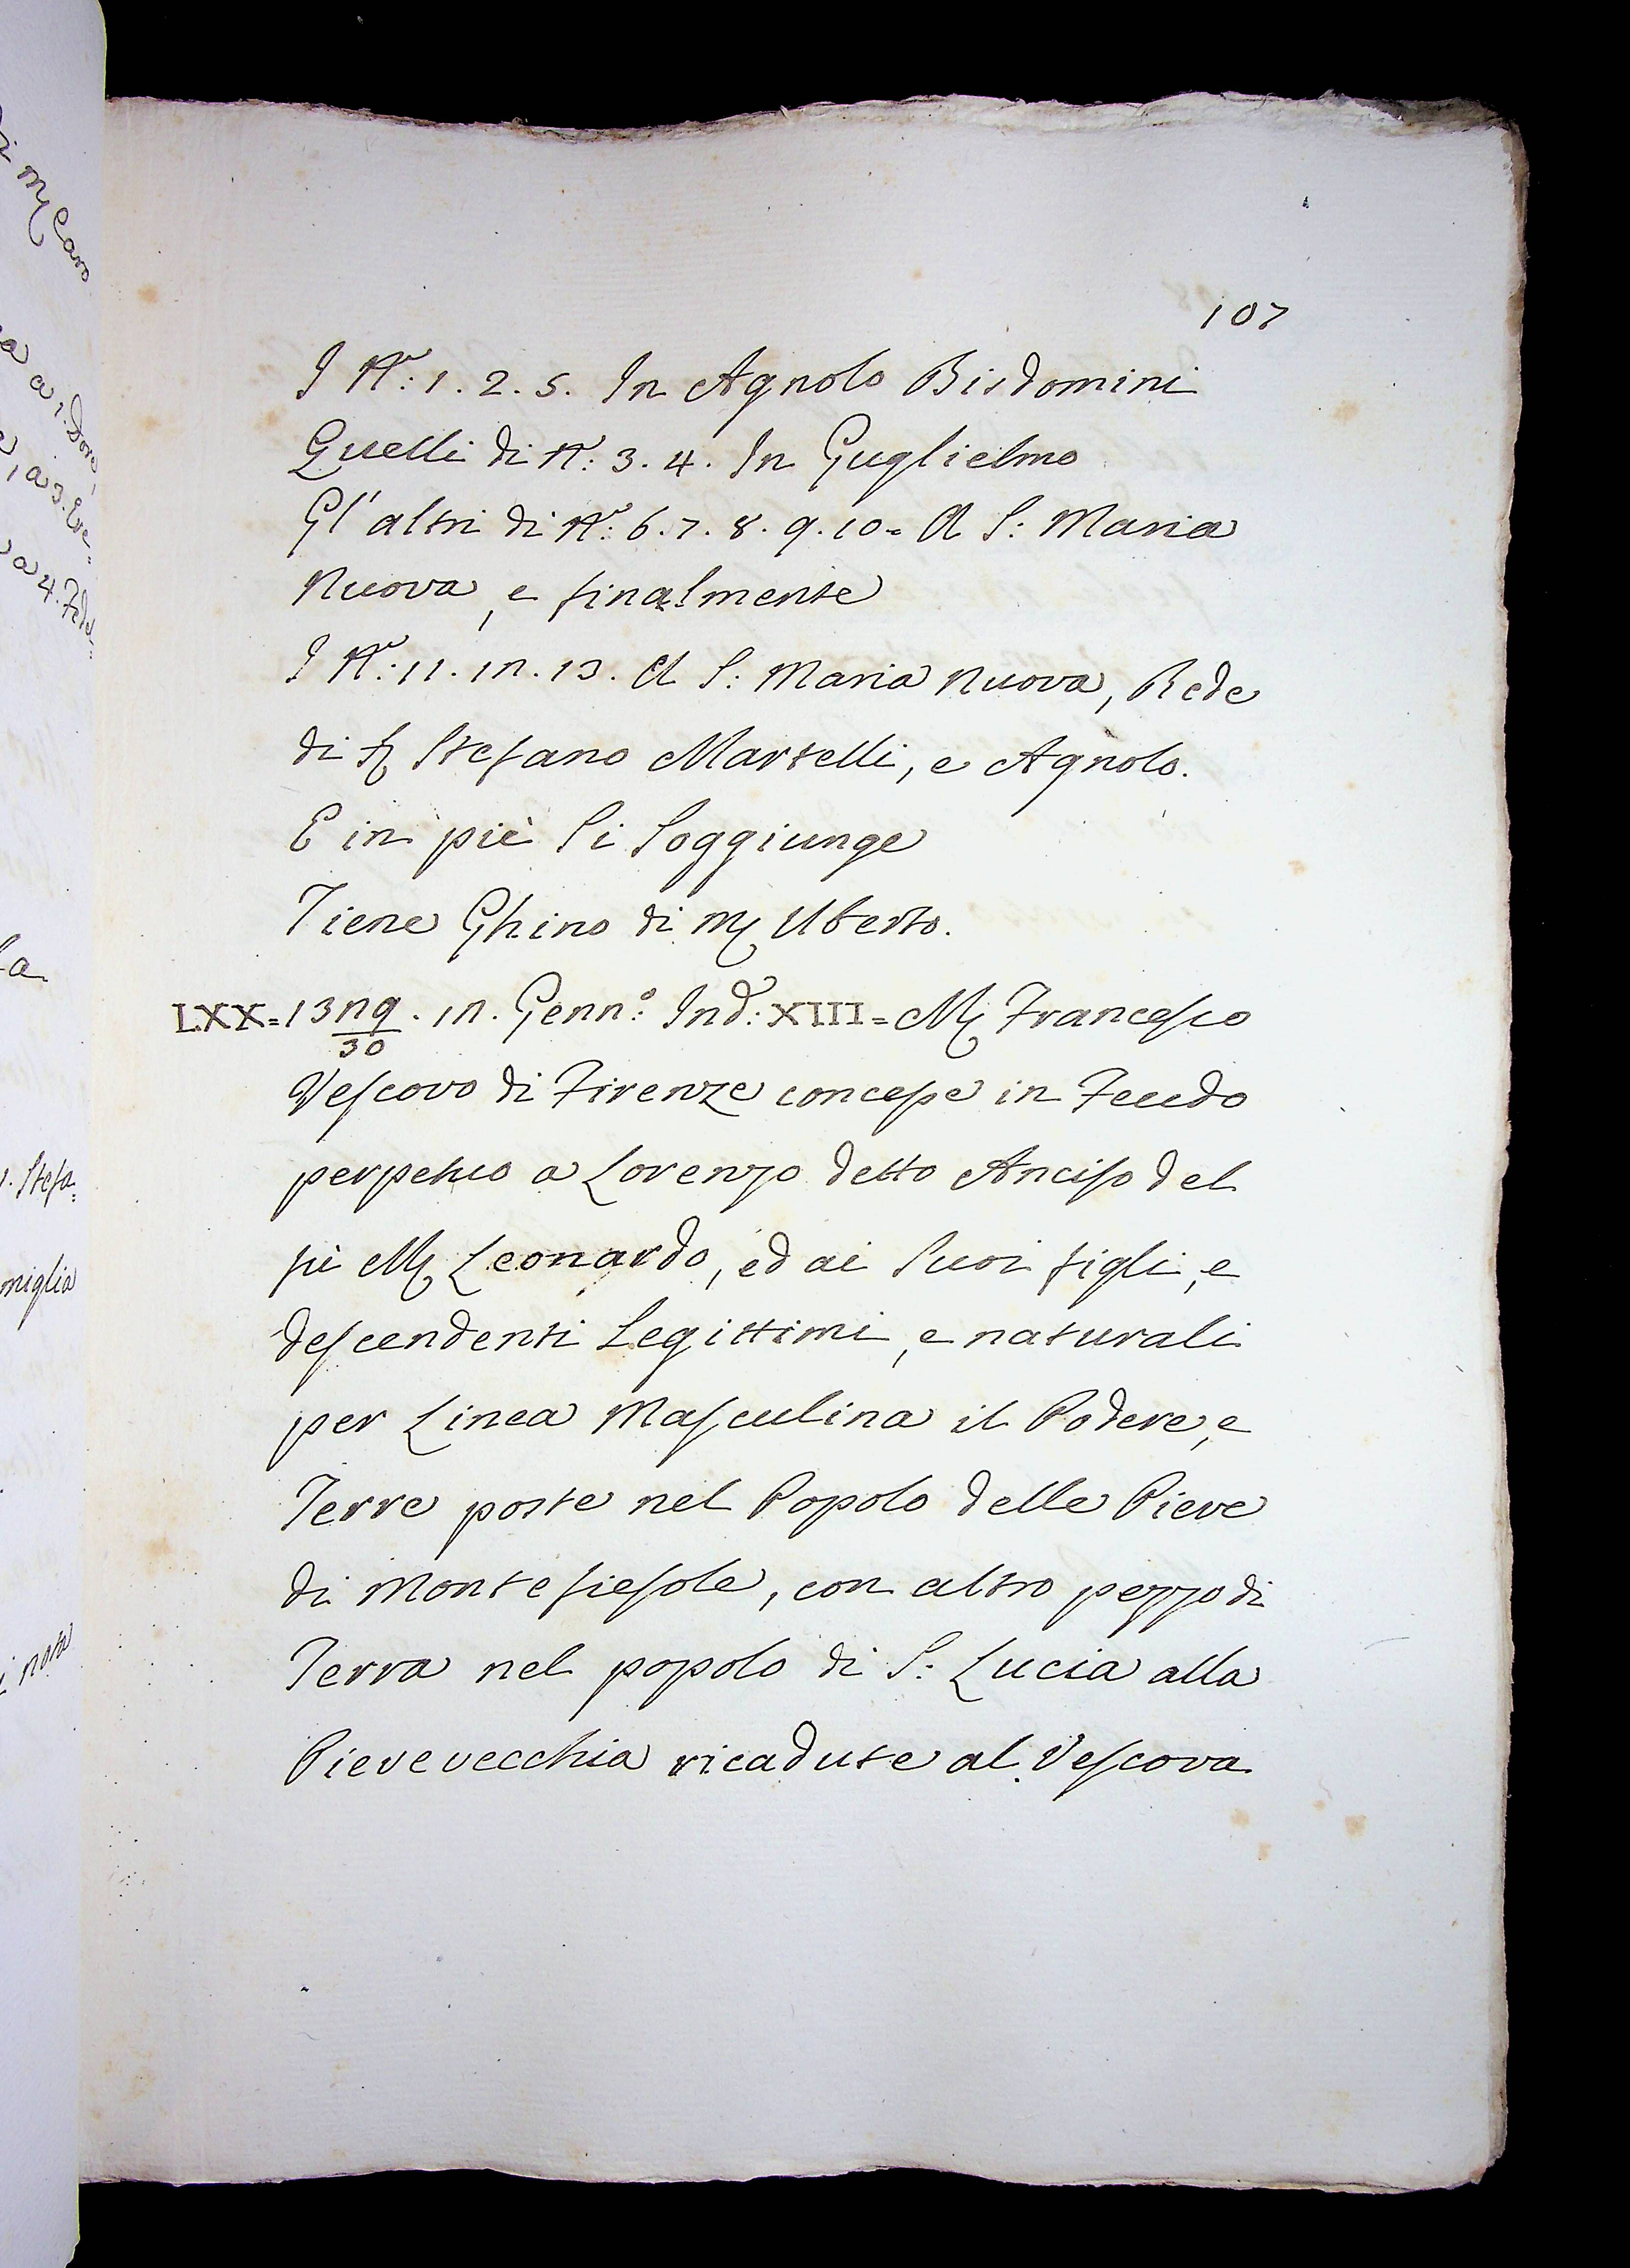 107
I N.ⁱ: 1. 2. 5. In Agnolo Bisdomini
Quelli di N: 3. 4. In Guglielmo
Gl'altri di N.: 6. 7. 8. 9. 10 = A S: Maria
Nuova, e finalmente
I N.ⁱ: 11. 12. 13. A S: Maria Nuova, Rede
di Stefano Martelli, e Agnolo.
E in piè Si Soggiunge
Tiene Ghino di M Uberto.
LXX = 1329/30. 12. Genn.º: Ind.: XIII = M Francesco
Vescovo di Firenze concesse in Feudo
perpetuo a Lorenzo detto Anciso del
fù M Leonardo, ed ai Suoi figli, e
descendenti Legittimi, e naturali
per Linea Masculina il Podere, e
Terre poste nel Popolo delle Pieve
di Montefiesole, con altro pezzo di
Terra nel popolo di S: Lucia alla
Pievevecchia ricadute al Vescova
M
a 1.
a 3.
a 4.
la
Stefa=
miglia